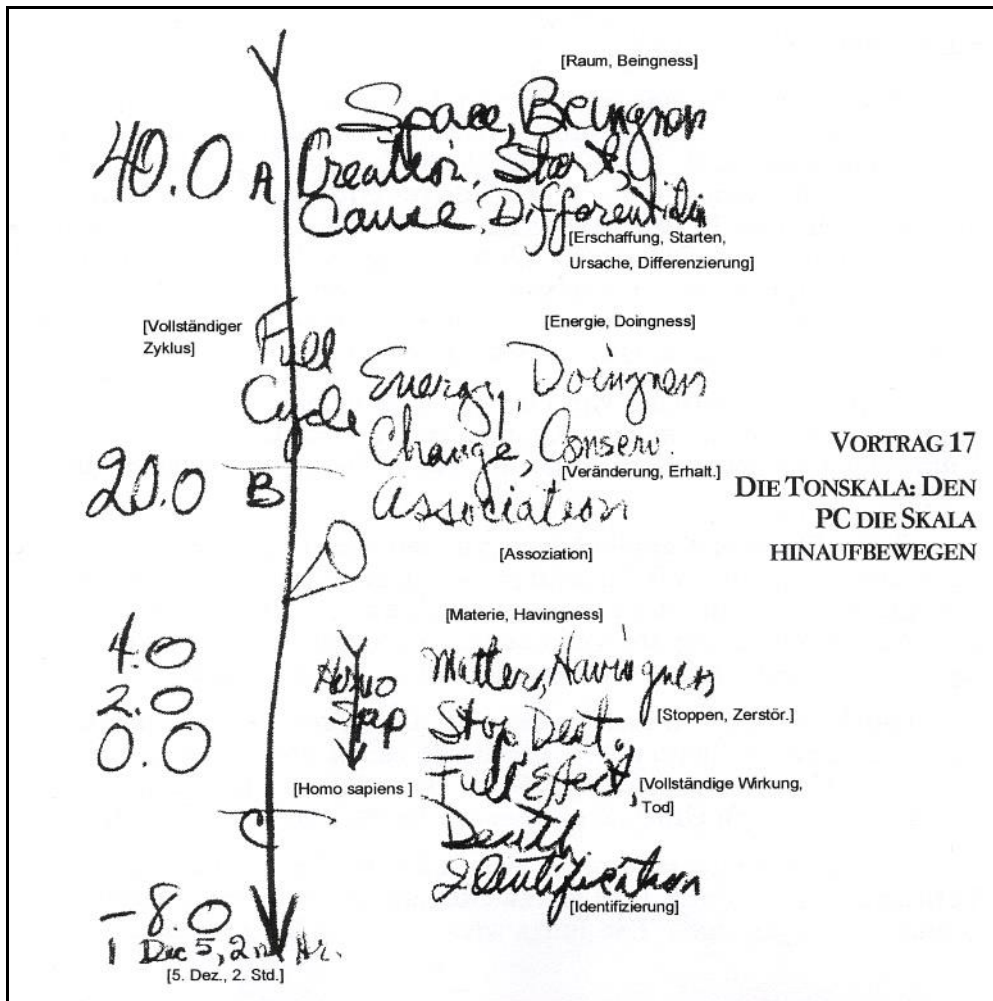 [Raum, Beingness]
Space, Beingness
40.0 A Creation, Start,
Cause, Differentiation
[Erschaffung, Starten,
Ursache, Differenzierung]
[Vollständiger
Zyklus]
Full
Cycle
[Energie, Doingness]
Energy, Doingness
Change, Conserv.
[Veränderung, Erhalt.]
20.0 B Association
[Assoziation]
VORTRAG 17
DIE TONSKALA: DEN
PC DIE SKALA
HINAUFBEWEGEN
[Materie, Havingness]
4.0
2.0
0.0
Homo
Sap
[Homo sapiens ]
Matter, Havingness
[Stoppen, Zerstör.]
Stop, Dest.,
Full Effect,
[Vollständige Wirkung,
Tod]
C
Death
Identification
[Identifizierung]
-8.0
1 Dec 5, 2nd Hr.
[5. Dez., 2. Std.]